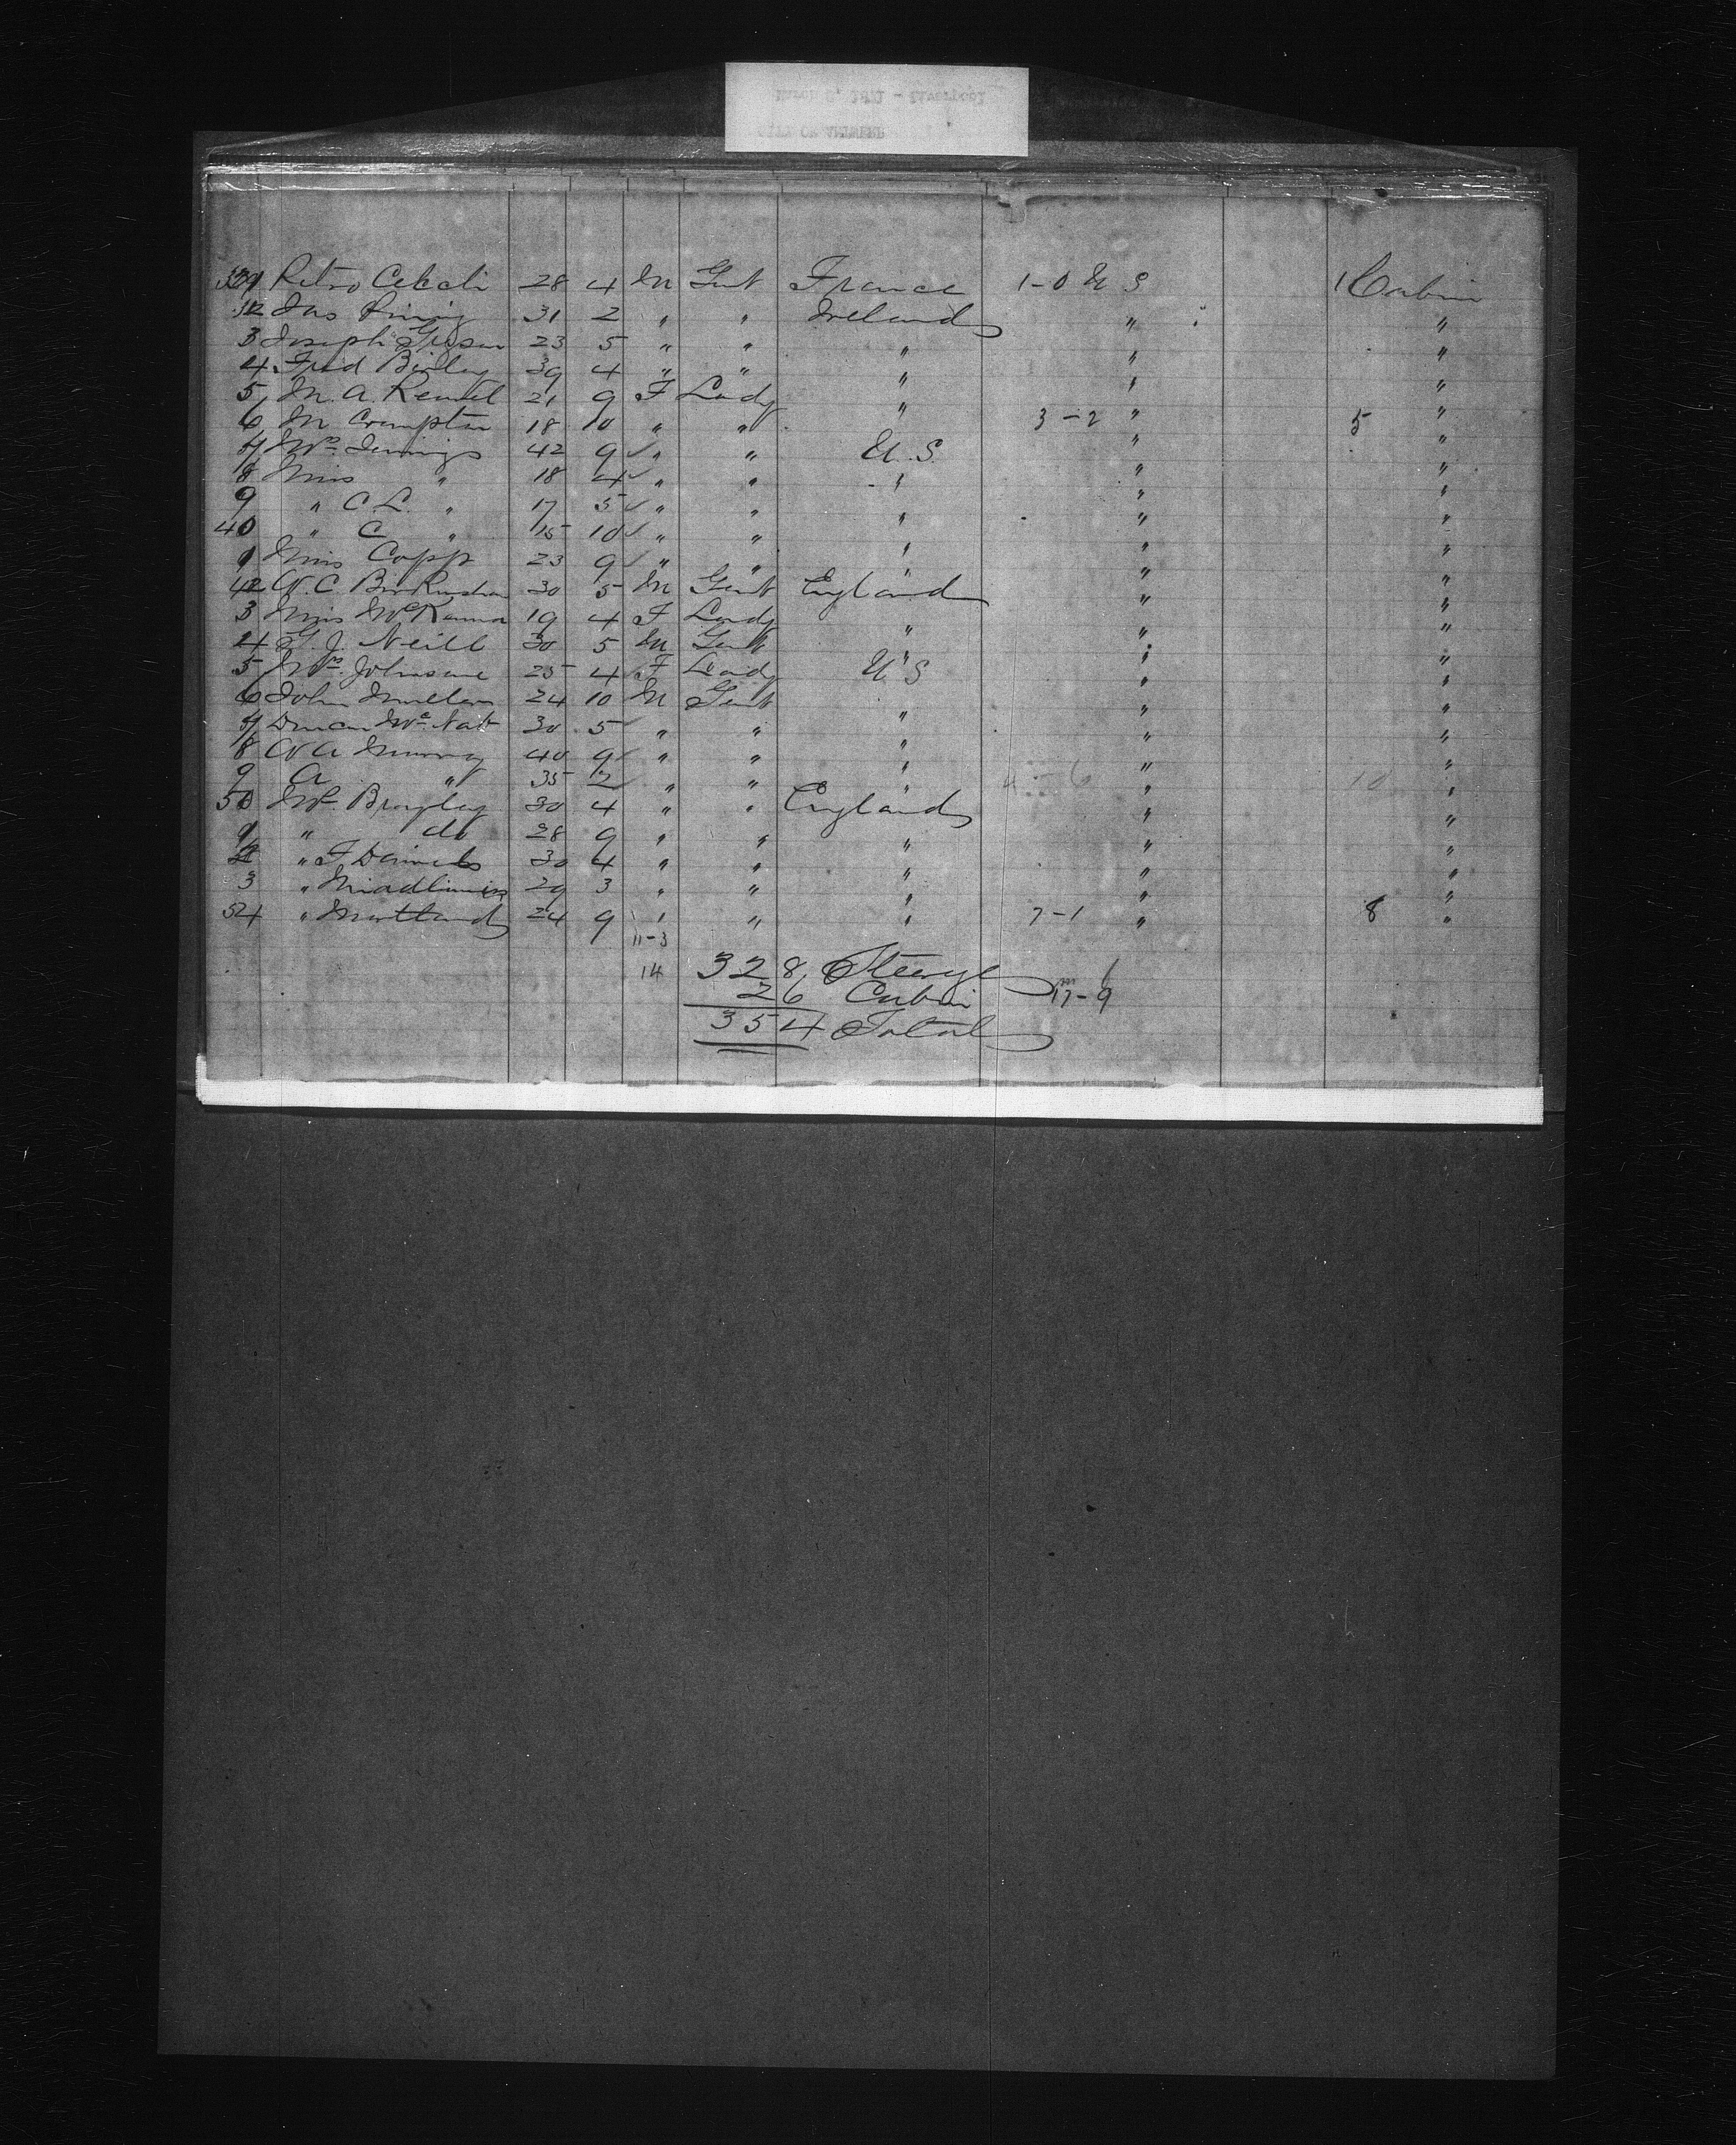 March 6, 1871 - Liverpool
CITY OF ANTWERP
Pitro Cebali 28 4 M Gent France 1-0 U S 1 Cabin
32 Jas 31 2 " " Ireland " "
3 Joseph 23 5 " " " " "
4 Fred 39 4 " " " " "
5 M. A. 21 9 F Lady " " "
6 M Crompton 18 10 " " " 3-2 " 5 "
7 Mrs Jennings 42 9 " " U.S. " "
8 Miss " 18 4 " " " " "
9 " C L. " 17 5 " " " " "
40 " C " 15 10 " " " " "
1 Miss Copp 23 9 " " " " "
42 W. C. 30 5 M Gent England " "
3 Miss McKenna 19 4 F Lady " " "
4 J. Neill 30 5 M Gent " " "
5 Mrs Johnson 25 4 F Lady U S " "
6 John 24 10 M Gent " " "
7 Duncan McNab 30 5 " " " " "
8 W A Murray 40 9 " " " " "
9 A " 35 2 " " " 4-6 " 10 "
50 Mr Brayley 30 4 " " England " "
1 " do 28 9 " " " " "
2 " F Daniels 30 4 " " " " "
3 " 29 3 " " " " "
54 " Martland 24 9 " " " 7-1 " 8 "
11-3
14 328 Steerage
26 Cabin 17-9
354 Total